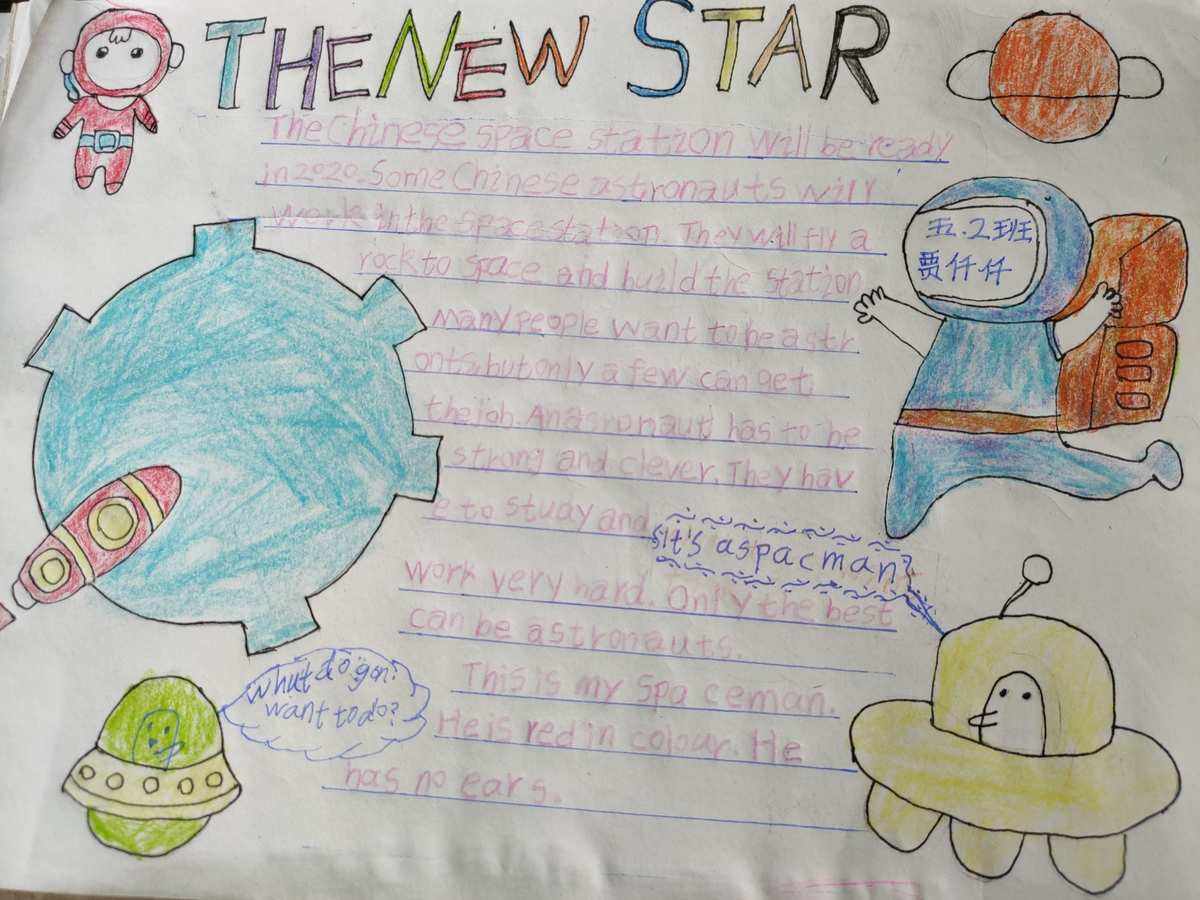 THE NEW STAR
The Chinese space station will be ready
in 2020. Some Chinese astronauts will
work in the space station. They will fly a
rock to space and build the station
Many people want to be a str
onts, but only a few can get
the job. An asronaut has to be
strong and clever. They hav
e to study and
work very hard. Only the best
can be astronauts.
This is my spaceman.
He is red in colour. He
has no ears.
五.2班
贾仟仟
It's a spacman?
What do you?
want to do?